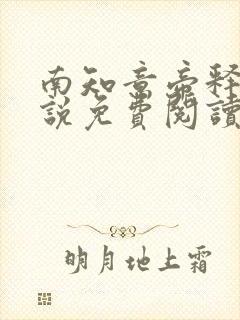 南知意帝释
說免費閱讀
明月地上霜